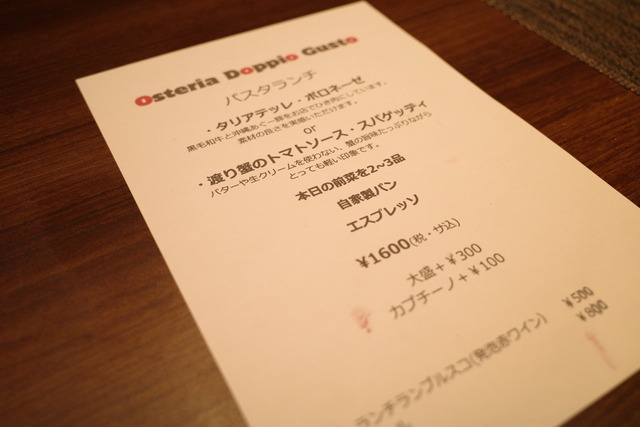 Osteria Doppio Gusto
パスタランチ
・タリアテッレ・ボロネーゼ
黒毛和牛と沖縄あぐー豚をお店でひき肉にしています。
素材の良さを実感いただけます。
or
・渡り蟹のトマトソース・スパゲッティ
バターや生クリームを使わない、蟹の旨味たっぷりながら
とっても軽い印象です。
本日の前菜を2~3品
自家製パン
エスプレッソ
¥1600(税・サ込)
大盛+¥300
カプチーノ+¥100
¥500
ランチランブルスコ(発泡赤ワイン) ¥800